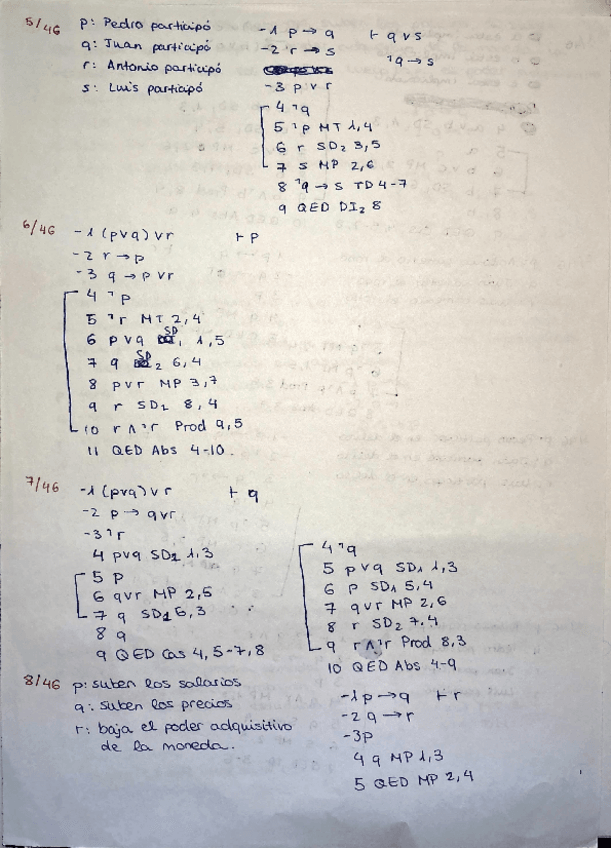 5/46 p: Pedro participó
q: Juan participó
r: Antonio participó
s: Luis participó
-1 p → q ⊢ q v s
-2 r → s ¬q → s
-3 p v r
4 ¬q
5 ¬p MT 1,4
6 r SD₂ 3,5
7 s MP 2,6
8 ¬q → s TD 4-7
9 QED DI₂ 8
6/46 -1 (pvq) v r ⊢ p
-2 r → p
-3 q → p v r
4 ¬p
5 ¬r MT 2,4
6 p v q SD₁ 1,5
7 q SD₂ 6,4
8 p v r MP 3,7
9 r SD₂ 8,4
10 r ∧ ¬r Prod 9,5
11 QED Abs 4-10.
7/46 -1 (pvq) v r ⊢ q
-2 p → q v r
-3 ¬r
4 p v q SD₂ 1,3
5 p
6 q v r MP 2,5
7 q SD₁ 6,3
8 q
9 QED Cas 4,5-7,8
4 ¬q
5 p v q SD₁ 1,3
6 p SD₁ 5,4
7 q v r MP 2,6
8 r SD₂ 7,4
9 r ∧ ¬r Prod 8,3
10 QED Abs 4-9
8/46 p: suben los salarios
q: suben los precios
r: baja el poder adquisitivo
de la moneda.
-1 p → q ⊢ r
-2 q → r
-3 p
4 q MP 1,3
5 QED MP 2,4